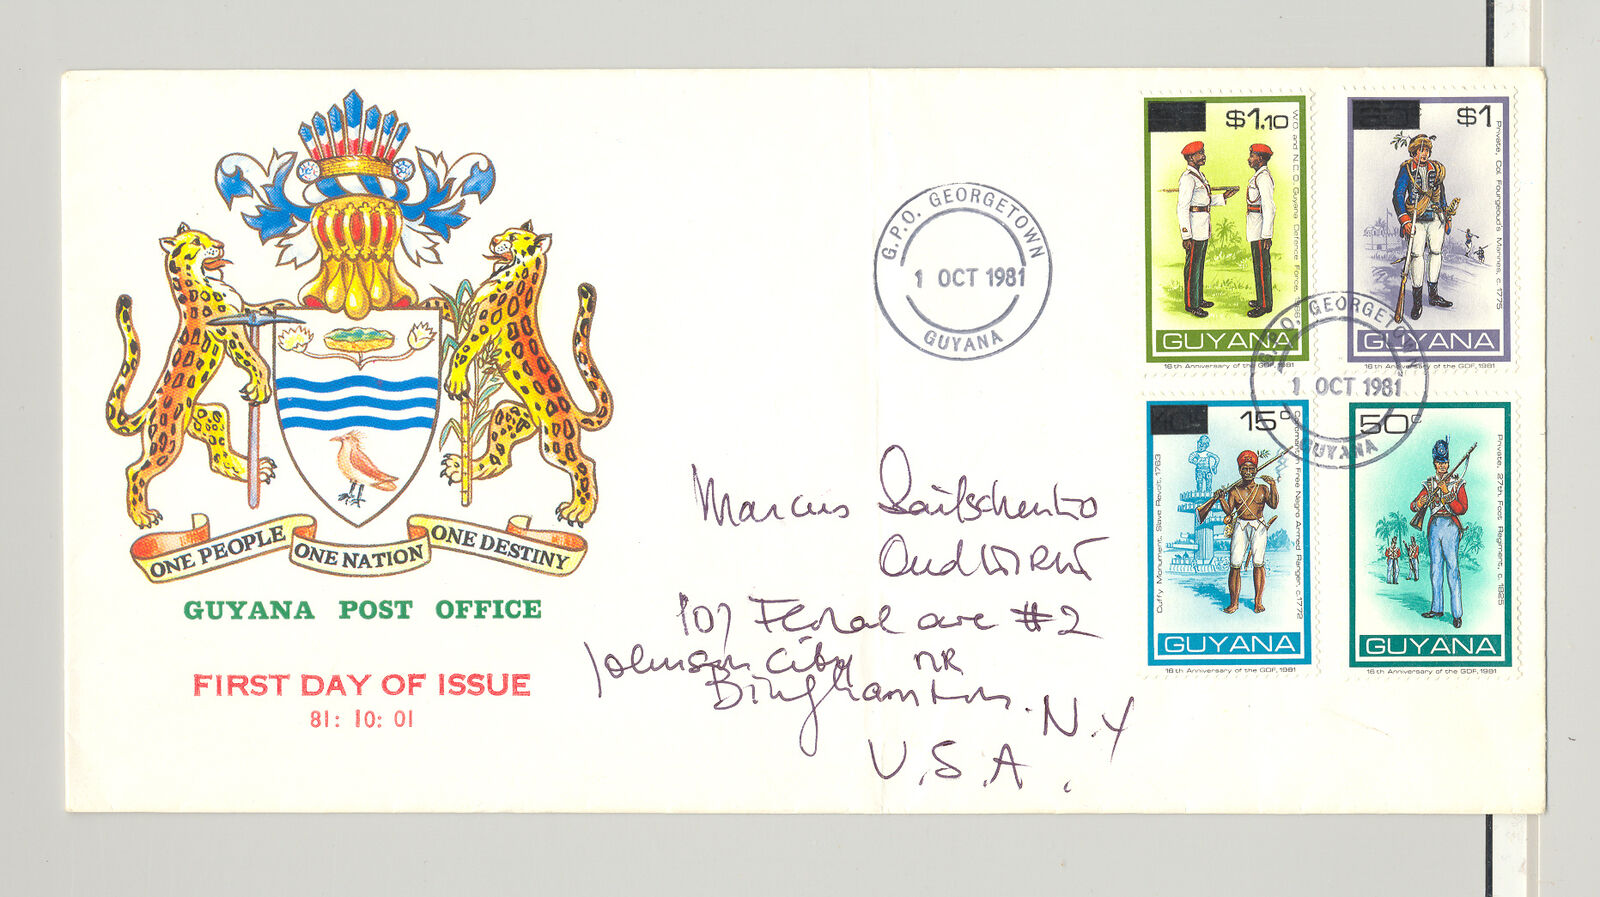 ONE PEOPLE ONE NATION ONE DESTINY
GUYANA POST OFFICE
FIRST DAY OF ISSUE
81: 10: 01
G.P.O. GEORGETOWN
1 OCT 1981
GUYANA
$1.10
W.O. and N.C.O. Guyana Defence Force,
GUYANA
16th Anniversary of the GDF, 1981
$1
Private, Col. Fourgeoud's Marines, c. 1775
GUYANA
16th Anniversary of the GDF, 1981
G.P.O. GEORGETOWN
1 OCT 1981
GUYANA
15c
Cuffy Monument, Slave Revolt, 1763
Free Negro Armed Ranger, c. 1772
GUYANA
16th Anniversary of the GDF, 1981
50c
Private, 27th Foot Regiment, c. 1825
GUYANA
16th Anniversary of the GDF, 1981
Marcus
107 ave #2
Johnson City NR
Binghamton.
N.Y
U.S.A.